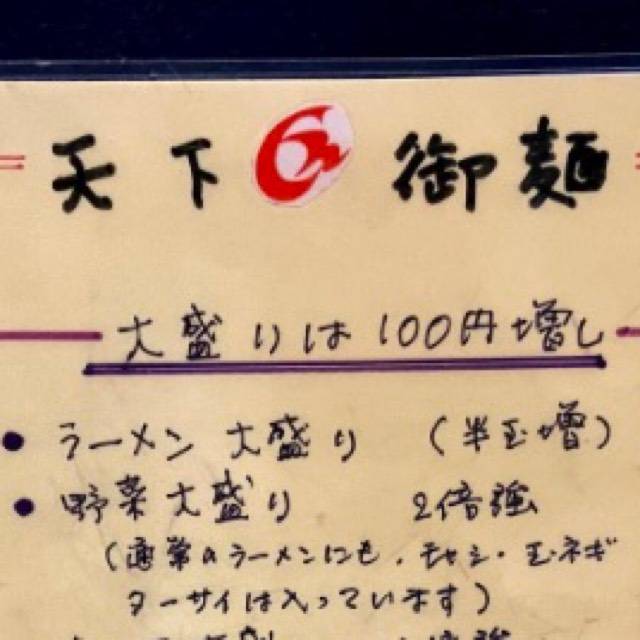 天下 御麺
大盛りは100円増し
● ラーメン大盛り (半玉増)
● 野菜大盛り 2倍強
(通常のラーメンにも、モヤシ・玉ネギ
ターサイは入っています)